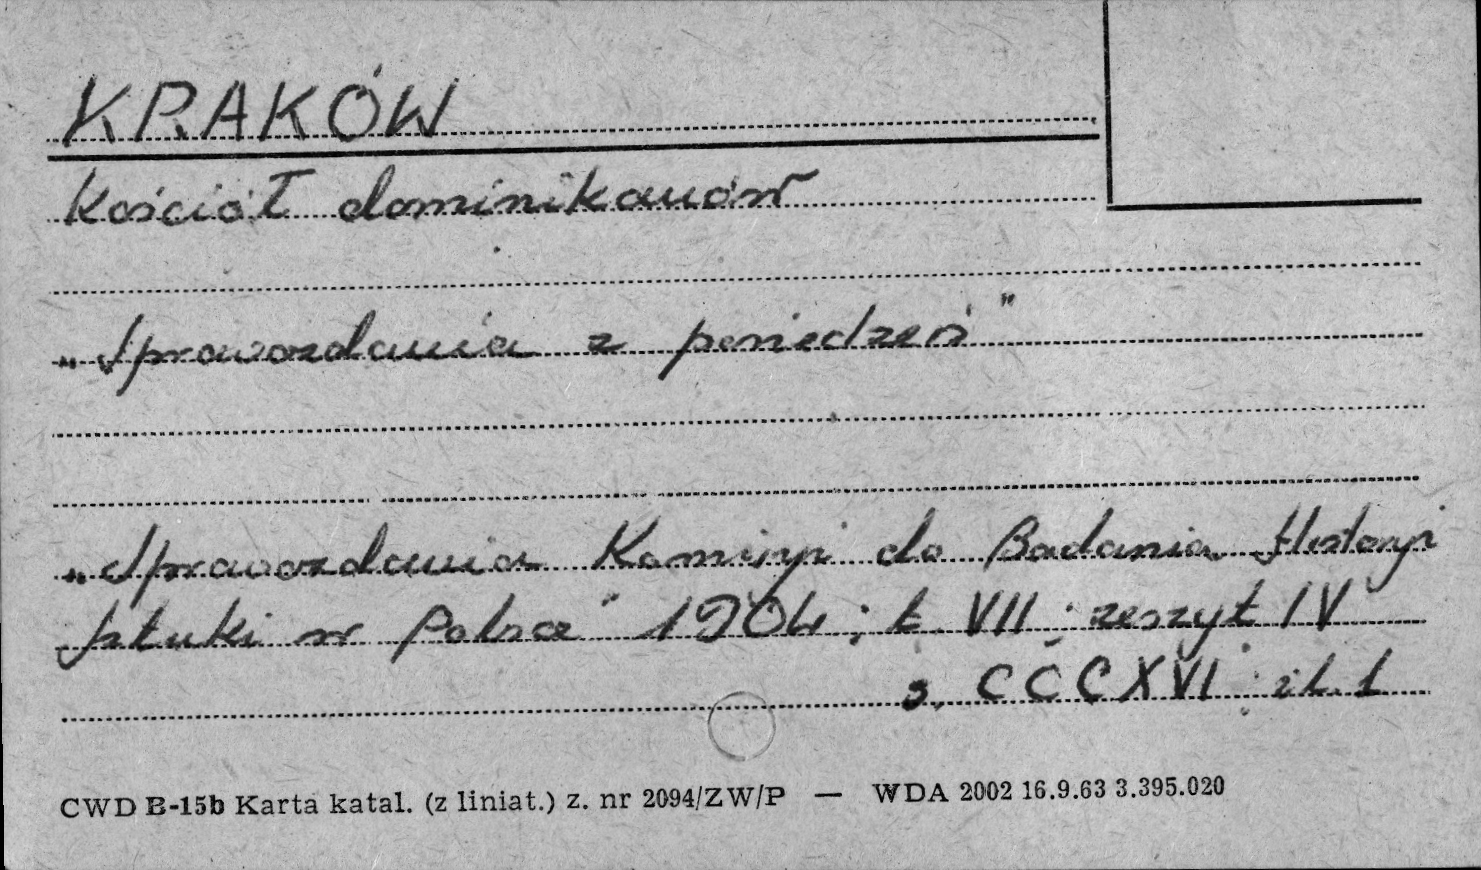 KRAKÓW
Kościół dominikanów
„Sprawozdania z posiedzeń"
„Sprawozdania Komisyi do Badania Historyi
Sztuki w Polsce" 1904; t. VII; zeszyt IV
s. CCCXVI; il. 1
CWD B-15b Karta katal. (z liniat.) z. nr 2094/ZW/P — WDA 2002 16.9.63 3.395.020